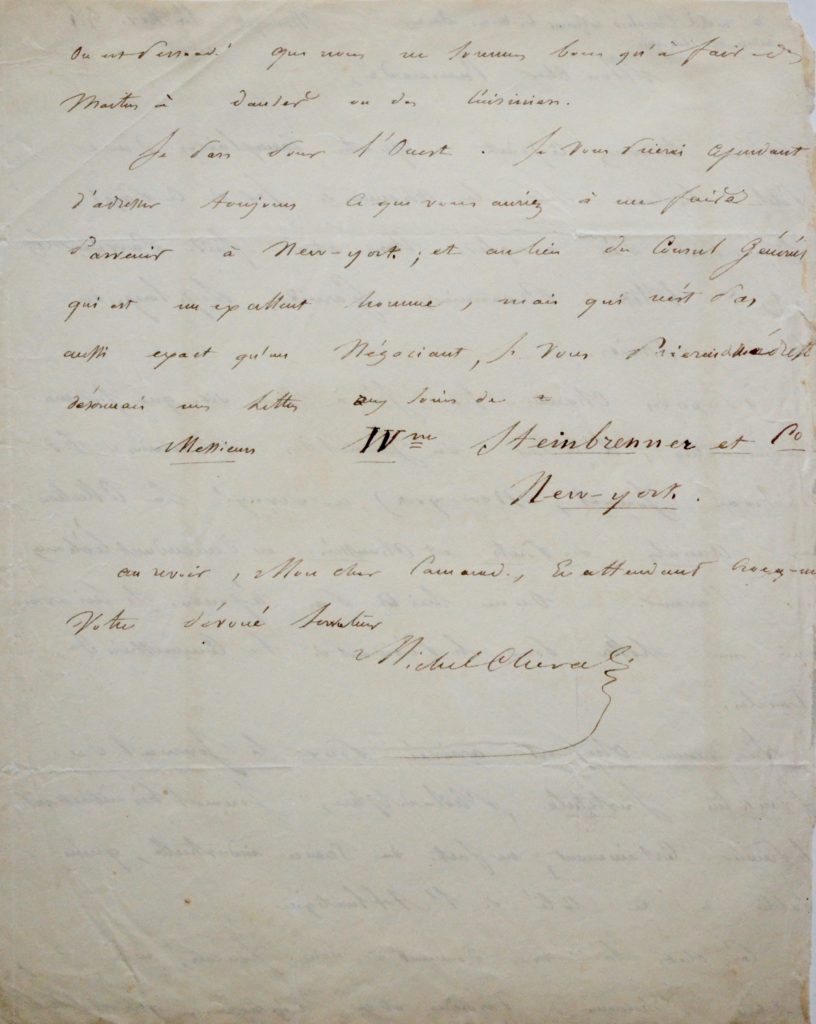 On est persuadé que nous ne sommes bons qu'à faire des
Maîtres à danser ou des Cuisiniers.
Je pars pour l'Ouest. Je vous prierai cependant
d'adresser toujours ce que vous auriez à me faire
parvenir à New-york ; et au lieu du Consul Général
qui est un excellent homme, mais qui n'est pas
aussi exact qu'un Négociant, Je vous prierai d'adresser
désormais mes lettres aux soins de
Messieurs Wm Steinbrenner et Co
New-york.
au revoir, Mon cher Camarade, En attendant Croyez-moi
Votre dévoué Serviteur
Michel Chevalier